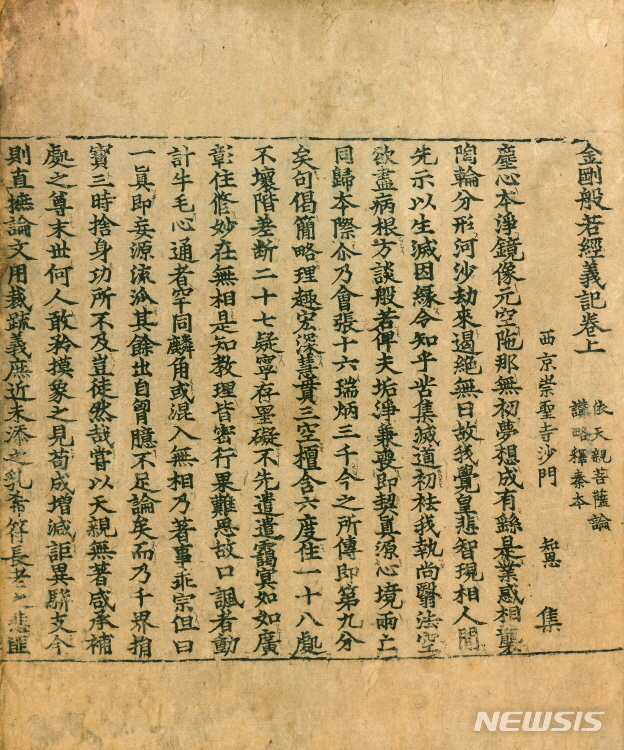 金剛般若經義記卷上
依天親菩薩論
讚略釋秦本
西京崇聖寺沙門 知恩 集
塵心本淨鏡像元空陁那無初夢想成有繇是業惑相襲
陶輪分形河沙劫來遏絕無日故我覺皇悲智現相人間
先示以生滅因緣令知乎苦集滅道初袪我執尚翳法空
欲盡病根方談般若俾夫垢淨兼喪即契真源心境兩亡
同歸本際尒乃會張十六瑞炳三千今之所傳即第九分
矣句偈簡略理趣宏深慧貫三空檀含六度住一十八處
不壞階差斷二十七疑寧存罣礙不先遣遣曷冥如如廣
彰住修妙在無相是知教理皆密行果難思故口諷者動
計牛毛心通者罕同麟角或混入無相乃著事乖宗但曰
一眞即妄源流㳂其餘出自胷臆不足論矣而乃千界捐
寶三時捨身功所不及豈徒然哉嘗以天親無著咸承補
處之尊末世何人敢矜摸象之見苟成增減詎異騈支今
則直摭論文用裁疏義庶近未添之乳希符長者之悲匪
NEWSIS